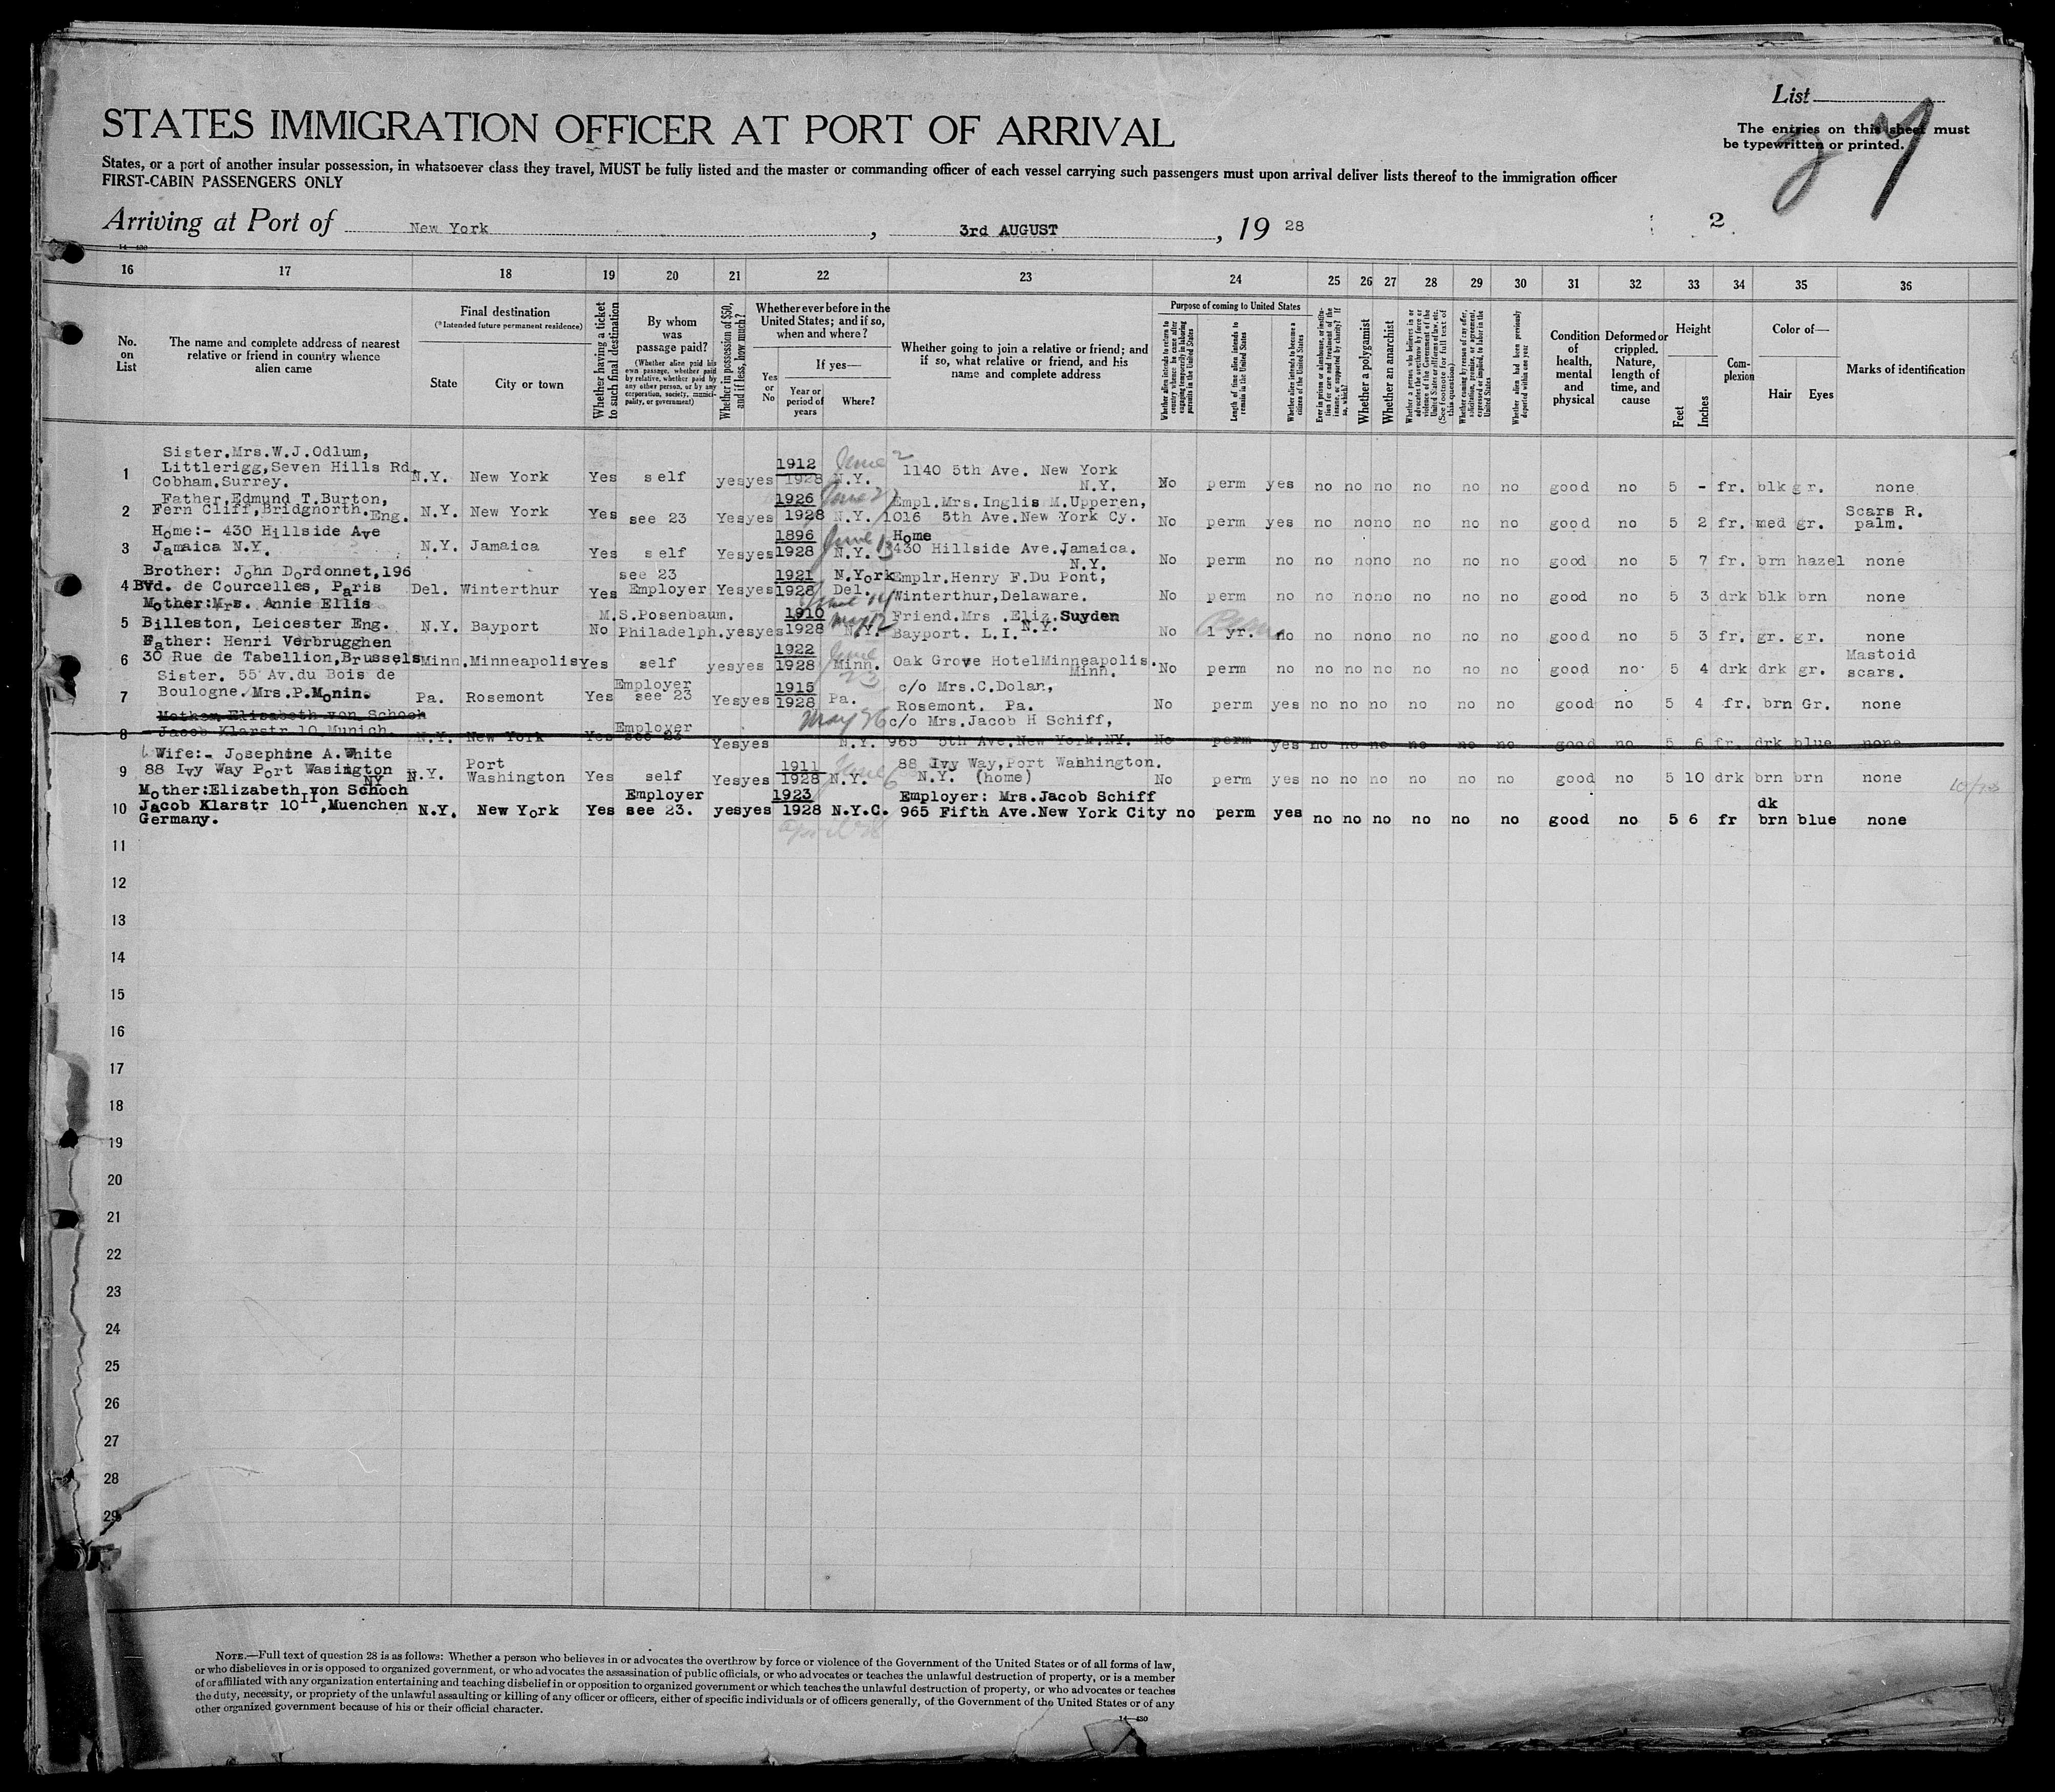 List
27
STATES IMMIGRATION OFFICER AT PORT OF ARRIVAL
The entries on this sheet must
be typewritten or printed.
States, or a port of another insular possession, in whatsoever class they travel, MUST be fully listed and the master or commanding officer of each vessel carrying such passengers must upon arrival deliver lists thereof to the immigration officer
FIRST-CABIN PASSENGERS ONLY
Arriving at Port of New York, 3rd AUGUST, 19 28
2
14—430
16 17 18 19 20 21 22 23 24 25 26 27 28 29 30 31 32 33 34 35 36
No. on List
The name and complete address of nearest relative or friend in country whence alien came
Final destination (*Intended future permanent residence) State City or town
Whether having a ticket to such final destination
By whom was passage paid? (Whether alien paid his own passage, whether paid by relative, whether paid by any other person, or by any corporation, society, municipality, or government)
Whether in possession of $50, and if less, how much?
Whether ever before in the United States; and if so, when and where? Yes or No If yes— Year or period of years Where?
Whether going to join a relative or friend; and if so, what relative or friend, and his name and complete address
Purpose of coming to United States
Whether alien intends to return to country whence he came after engaging temporarily in laboring pursuits in the United States
Length of time alien intends to remain in the United States
Whether alien intends to become a citizen of the United States
Ever in prison or almshouse, or institution for care and treatment of the insane, or supported by charity? If so, which?
Whether a polygamist
Whether an anarchist
Whether a person who believes in or advocates the overthrow by force or violence of the Government of the United States or all forms of law, etc. (See footnote for full text of this question)
Whether coming by reason of any offer, solicitation, promise, or agreement, expressed or implied, to labor in the United States
Whether alien had been previously deported within one year
Condition of health, mental and physical
Deformed or crippled. Nature, length of time, and cause
Height Feet Inches
Complexion
Color of— Hair Eyes
Marks of identification
1 Sister.Mrs.W.J.Odlum,
Littlerigg,Seven Hills Rd.
Cobham,Surrey. N.Y. New York Yes self yesyes 1912 1928 June 2 N.Y. 1140 5th Ave. New York N.Y. No perm yes no no no no no no good no 5 - fr. blk gr. none
2 Father,Edmund T.Burton,
Fern Cliff,Bridgnorth.Eng. N.Y. New York Yes see 23 Yesyes 1926 1928 June 27 N.Y. Empl.Mrs.Inglis M.Upperen,
1016 5th Ave.New York Cy. No perm yes no no no no no no good no 5 2 fr. med gr. Scars R. palm.
3 Home:- 430 Hillside Ave
Jamaica N.Y. N.Y. Jamaica Yes self Yesyes 1896 1928 June 13 N.Y. Home
430 Hillside Ave.Jamaica. N.Y. No perm no no no no no no no good no 5 7 fr. brn hazel none
4 Brother: John Dordonnet,196
Bvd. de Courcelles, Paris Del. Winterthur Yes see 23 Employer Yesyes 1921 1928 N.York Del. Emplr.Henry F.Du Pont,
Winterthur,Delaware. No perm no no no no no no no good no 5 3 drk blk brn none
5 Mother:Mrs. Annie Ellis
Billeston, Leicester Eng. N.Y. Bayport No M.S.Posenbaum. Philadelph. yesyes 1910 1928 N.Y. Friend.Mrs .Eliz.Suyden
Bayport. L.I. N.Y. No 1 yr. no no no no no no no good no 5 3 fr. gr. gr. none
6 Father: Henri Verbrugghen
30 Rue de Tabellion,Brussels Minn.Minneapolis Yes self yesyes 1922 1928 June 23 Minn. Oak Grove Hotel Minneapolis. Minn. No perm no no no no no no no good no 5 4 drk drk gr. Mastoid scars.
7 Sister. 55 Av.du Bois de
Boulogne. Mrs.P.Monin. Pa. Rosemont Yes Employer see 23 Yesyes 1915 1928 Pa. c/o Mrs.C.Dolan,
Rosemont. Pa. No perm yes no no no no no no good no 5 4 fr. brn Gr. none
8 Mother Elizabeth von Schoch
Jacob Klarstr 10 Munich. N.Y. New York Yes Employer see 23 Yesyes May 26 N.Y. c/o Mrs.Jacob H Schiff,
965 5th Ave.New York.NY. No perm yes no no no no no no good no 5 6 fr. drk blue none
9 Wife:- Josephine A.White
88 Ivy Way Port Wasington NY N.Y. Port Washington Yes self Yesyes 1911 1928 June 6 N.Y. 88 Ivy Way,Port Wahhington.
N.Y. (home) No perm yes no no no no no no good no 5 10 drk brn brn none
10 Mother:Elizabeth von Schoch
Jacob Klarstr 10II,Muenchen
Germany. N.Y. New York Yes Employer see 23. yesyes 1923 1928 N.Y.C. Employer: Mrs.Jacob Schiff
965 Fifth Ave.New York City no perm yes no no no no no no good no 5 6 fr dk brn blue none
11
12
13
14
15
16
17
18
19
20
21
22
23
24
25
26
27
28
29
NOTE.—Full text of question 28 is as follows: Whether a person who believes in or advocates the overthrow by force or violence of the Government of the United States or of all forms of law,
or who disbelieves in or is opposed to organized government, or who advocates the assassination of public officials, or who advocates or teaches the unlawful destruction of property, or is a member
of or affiliated with any organization entertaining and teaching disbelief in or opposition to organized government or which teaches the unlawful destruction of property, or who advocates or teaches
the duty, necessity, or propriety of the unlawful assaulting or killing of any officer or officers, either of specific individuals or of officers generally, of the Government of the United States or of any
other organized government because of his or their official character.
14—430